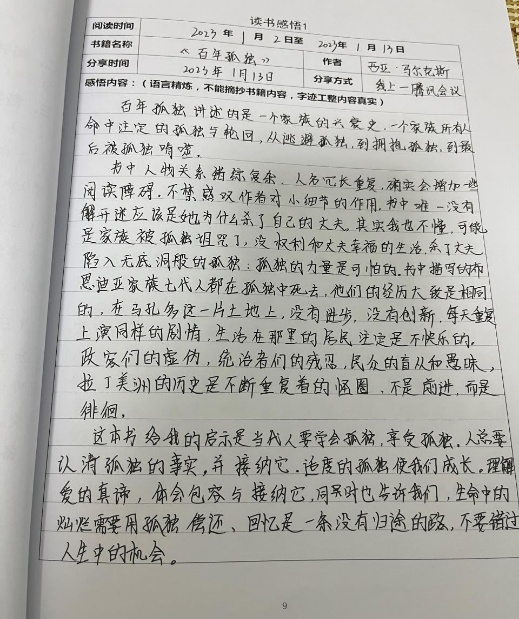 读书感悟1
阅读时间 2023年1月2日至2023年1月13日
书籍名称 《百年孤独》 作者 西亚·马尔克斯
分享时间 2023年1月13日 分享方式 线上—腾讯会议
感悟内容：（语言精炼，不能摘抄书籍内容，字迹工整内容真实）
百年孤独讲述的是一个家族的兴衰史，一个家族所有人
命中注定的孤独与轮回，从逃避孤独，到拥抱孤独，到最
后被孤独啃噬。
书中人物关系错综复杂，人名冗长重复，确实会增加一些
阅读障碍。不禁感叹作者对小细节的作用。书中唯一没有
解开迷应该是她为什么杀了自己的丈夫，其实我也不懂，可能
是家族被孤独诅咒了，没权利和丈夫幸福的生活，杀了丈夫
陷入无底洞般的孤独；孤独的力量是可怕的。书中描写的布
恩迪亚家族七代人都在孤独中死去，他们的经历大致是相同
的，在马孔多这一片土地上，没有进步，没有创新，每天重复
上演同样的剧情，生活在那里的居民注定是不快乐的。
政客们的虚伪，统治者们的残忍，民众的盲从和愚昧，
拉丁美洲的历史是不断重复着的怪圈，不是前进，而是
徘徊。
这本书给我的启示是当代人要学会孤独，享受孤独。人总要
认清孤独的事实，并接纳它。适度的孤独使我们成长。理解
爱的真谛，体会包容与接纳它，同时也告诉我们，生命中的
灿烂需要用孤独偿还、回忆是一条没有归途的路，不要错过
人生中的机会。
9